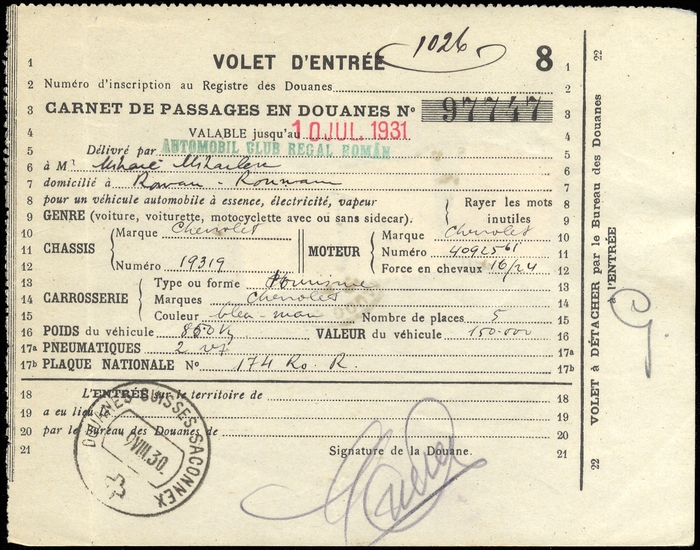 1026
1 VOLET D'ENTRÉE 8 1
2 Numéro d'inscription au Registre des Douanes 2
3 CARNET DE PASSAGES EN DOUANES Nº 97747 3
4 VALABLE jusqu'au 10 JUL. 1931 4
5 Délivré par AUTOMOBIL CLUB REGAL ROMÂN 5
6 à Mr 6
7 domicilié à 7
8 pour un véhicule automobile à essence, électricité, vapeur Rayer les mots 8
9 GENRE (voiture, voiturette, motocyclette avec ou sans sidecar). inutiles 9
10 Marque Chevrolet Marque Chevrolet 10
11 CHASSIS MOTEUR Numéro 4092561 11
12 Numéro 19319 Force en chevaux 16/24 12
13 Type ou forme 13
14 CARROSSERIE Marques Chevrolet 14
15 Couleur Nombre de places 5 15
16 POIDS du véhicule VALEUR du véhicule 150.000 16
17a PNEUMATIQUES 2 17a
17b PLAQUE NATIONALE Nº 174 Ro. R. 17b
18 L'ENTRÉE sur le territoire de 18
19 a eu lieu le 19
20 par le Bureau des Douanes de 20
21 Signature de la Douane. 21
DOUANES SUISSES SACONNEX
9 VIII. 30.
22 VOLET à DÉTACHER par le Bureau des Douanes 22
à l'ENTRÉE